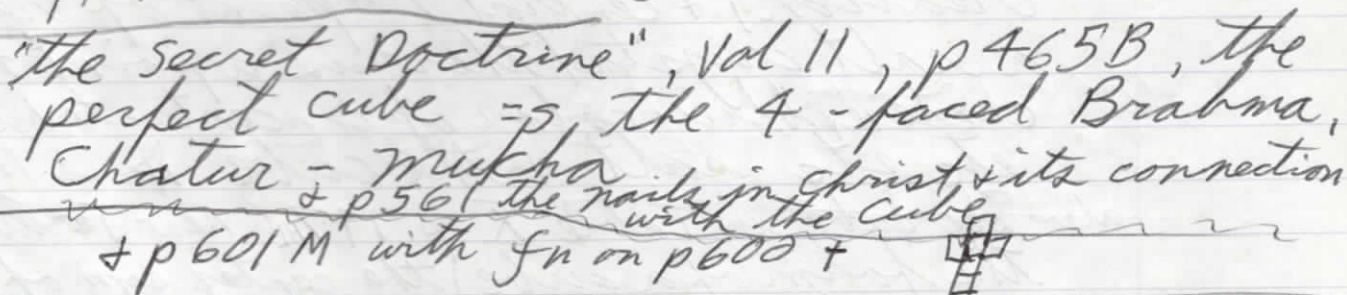 "the Secret Doctrine", Vol 11, p465B, the
perfect cube =s, the 4-faced Brahma,
Chatur-mukha
& p561 the nails in Christ, & its connection
with the cube
& p601M with fn on p600 +